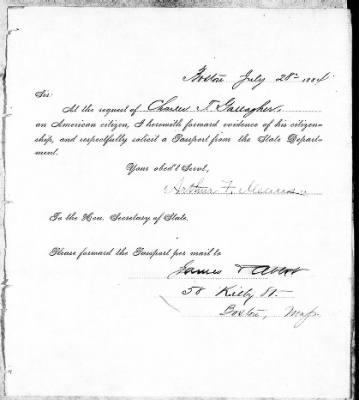 Boston July 28th 1884
Sir:
At the request of Charles T. Gallagher,
an American citizen, I herewith forward evidence of his citizen-
ship, and respectfully solicit a Passport from the State Depart-
ment.
Your obed't Servt,
Arthur F. Means
To the Hon. Secretary of State.
Please forward the Passport per mail to
James Abbot
50 Kilby St.
Boston, Mass